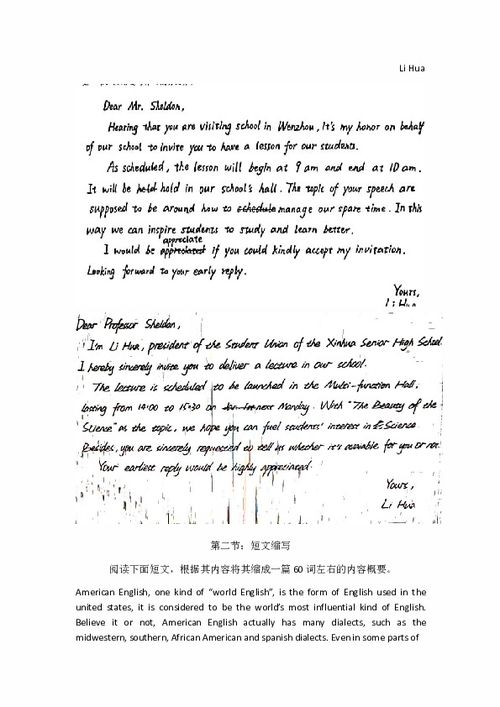 Li Hua
Dear Mr. Sheldon,
Hearing that you are visiting school in Wenzhou, it's my honor on behalf
of our school to invite you to have a lesson for our students.
As scheduled, the lesson will begin at 9 am and end at 10 am.
It will be held hold in our school's hall. The topic of your speech are
supposed to be around how to schedule manage our spare time. In this
way we can inspire students to study and learn better.
appreciate
I would be appreciated if you could kindly accept my invitation.
Looking forward to your early reply.
Yours,
Li Hua
Dear Professor Sheldon,
I'm Li Hua, president of the Student Union of the Xinhua Senior High School.
I hereby sincerely invite you to deliver a lecture in our school.
The lecture is scheduled to be launched in the Multi-function Hall,
lasting from 14:00 to 15:30 on next Monday. With "The Beauty of the
Science" as the topic, we hope you can fuel students' interest in Science.
Besides, you are sincerely requested to tell us whether it's available for you or not.
Your earliest reply would be highly appreciated.
Yours,
Li Hua
第二节：短文缩写
阅读下面短文，根据其内容将其缩成一篇 60 词左右的内容概要。
American English, one kind of "world English", is the form of English used in the
united states, it is considered to be the world's most influential kind of English.
Believe it or not, American English actually has many dialects, such as the
midwestern, southern, African American and spanish dialects. Even in some parts of